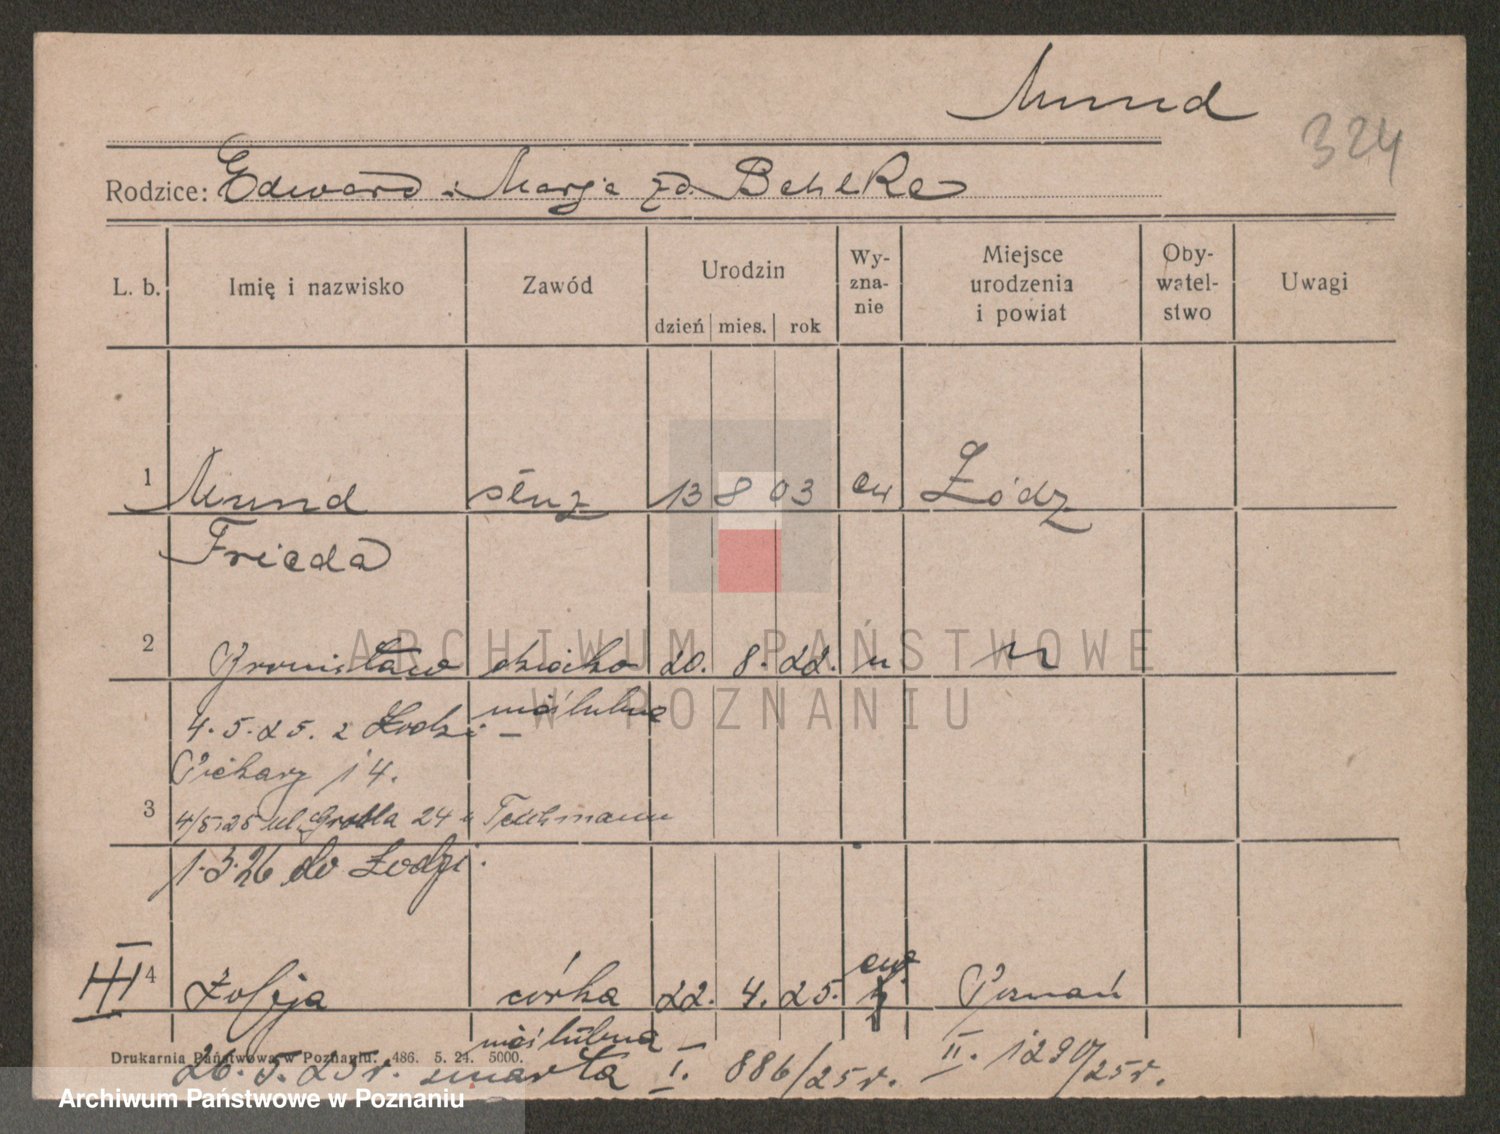 Mund
324
Rodzice: Edward i Marja zd. Behlke
L. b. Imię i nazwisko Zawód Urodzin dzień mies. rok Wyznanie Miejsce urodzenia i powiat Obywatelstwo Uwagi
1 Mund służ 13 8 03 ew Łódz
Frieda
2 Bronisław dziecko 20. 8. 22. " "
nieślubne
4.5.25. z Łodzi –
Piekary 14.
3 4/5.25 ul. Grobla 24 u Teichmann
1.3.26 do Łodzi.
III 4 Zofja córka 22. 4. 25. ew Poznań
nieślubna
Drukarnia Państwowa w Poznaniu. 486. 5. 24. 5000.
26.5.25r. zmarła I. 886/25r. II. 1290/25r.
ARCHIWUM PAŃSTWOWE
W POZNANIU
Archiwum Państwowe w Poznaniu